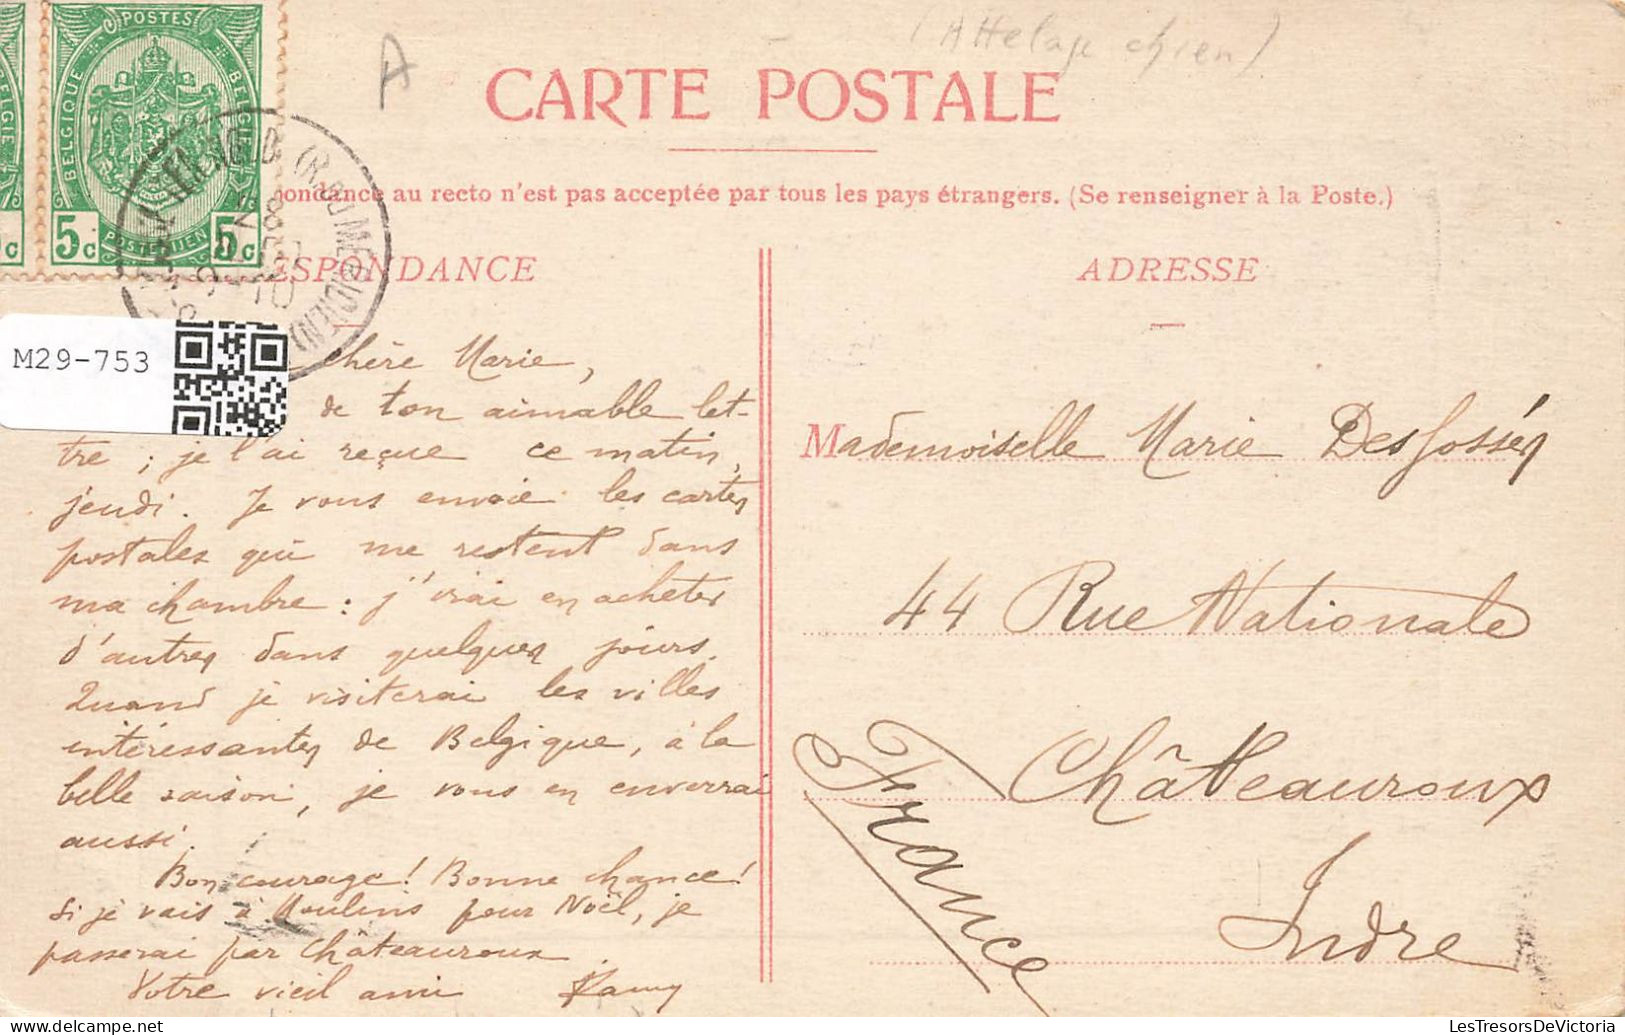 (Attelage chien)
A
CARTE POSTALE
pondance au recto n'est pas acceptée par tous les pays étrangers. (Se renseigner à la Poste.)
POSTES
BELGIQUE
BELGIE
5c
5c
POSTERIJEN
8
10
ESPONDANCE
ADRESSE
M29-753
chère Marie,
de ton aimable let-
tre ; je l'ai reçue ce matin,
jeudi. Je vous envoie les cartes
postales qui me restent dans
ma chambre : j'irai en acheter
d'autres dans quelques jours.
Quand je visiterai les villes
intéressantes de Belgique, à la
belle saison, je vous en enverrai
aussi.
Bon courage ! Bonne chance !
Si je vais à Moulins pour Noël, je
passerai par Châteauroux.
Votre vieil ami
Mademoiselle Marie Desfossés
44 Rue Nationale
Châteauroux
Indre
France
LesTresorsDeVictoria.com